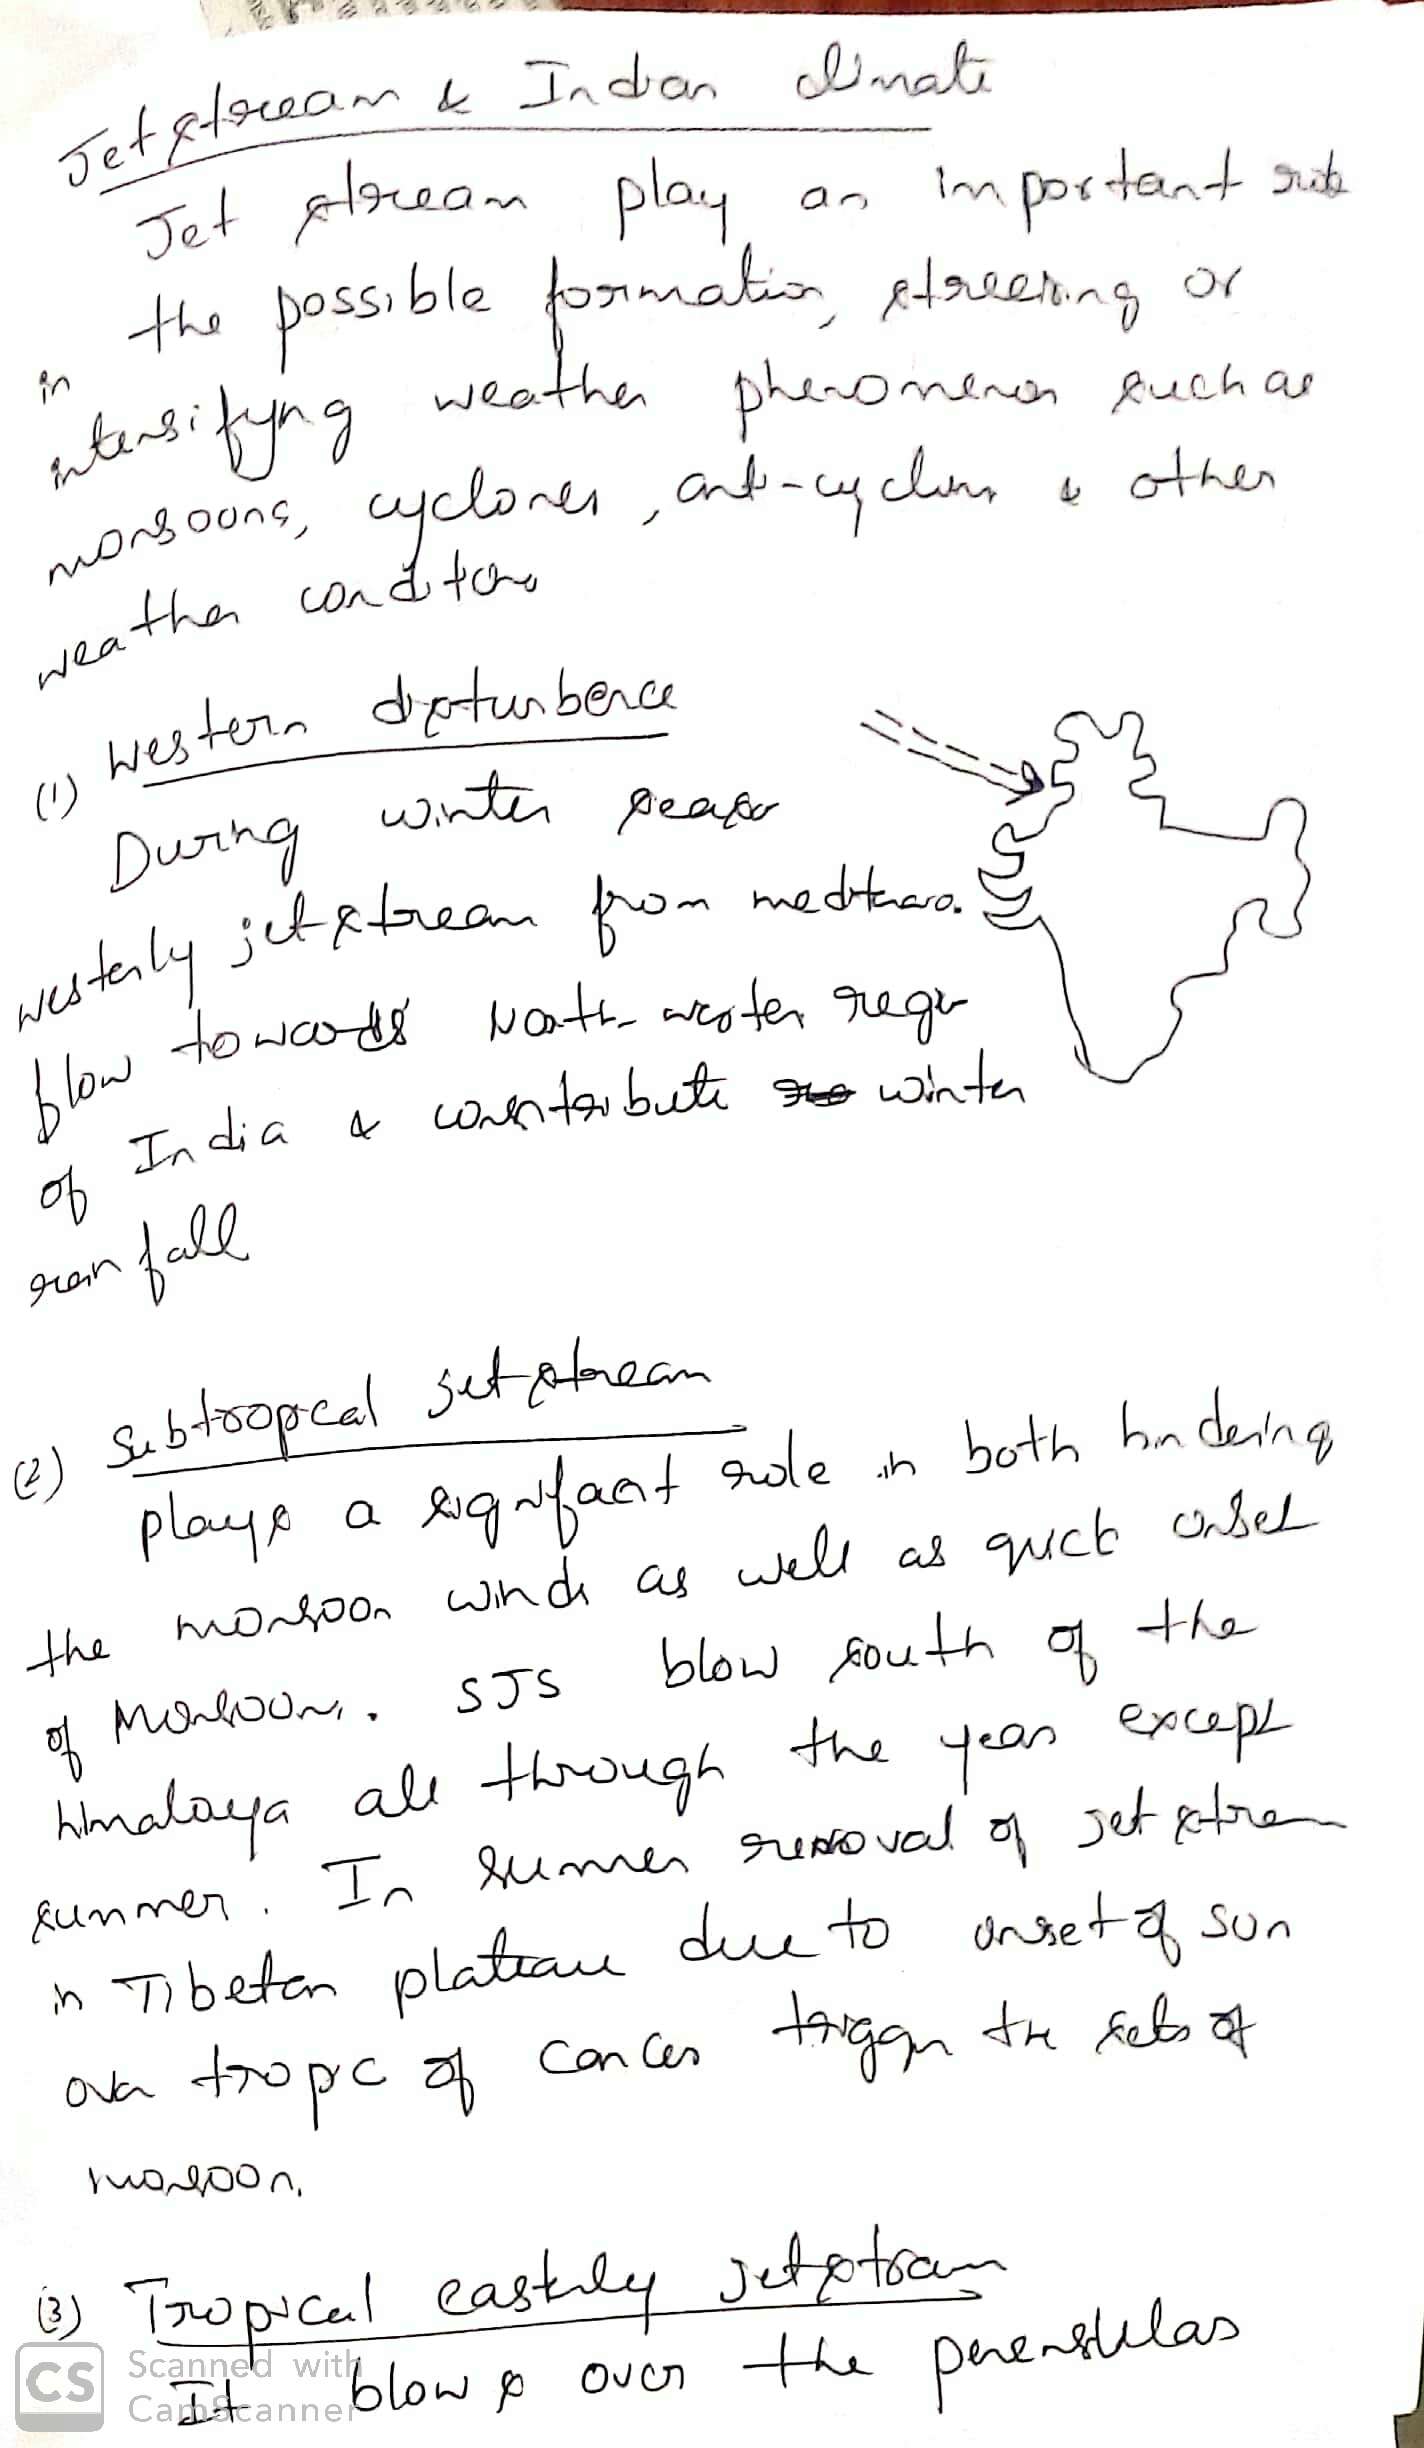 Jet stream & Indian climate
Jet stream play an important role
in the possible formation, streering or
intensifyng weather phenomena such as
monsoons, cyclones, anti-cyclons & other
weather conditions
(1) Western disturbence
During winter season
westerly jet stream from
flow towards North-wester region
of India & contribute winter
rain fall
(2) Subtropical jet stream
plays a significant role in both hindering
the monsoon winds as well as quick onset
of Monsoons. SJS blow south of the
himalaya all through the year except
summer. In summer removal of jet stream
in Tibetan plateau due to onset of sun
over tropic of Cancer trigger the of
monsoon.
(3) Tropical easterly jet stream
It blows over the
CS Scanned with
CamScanner